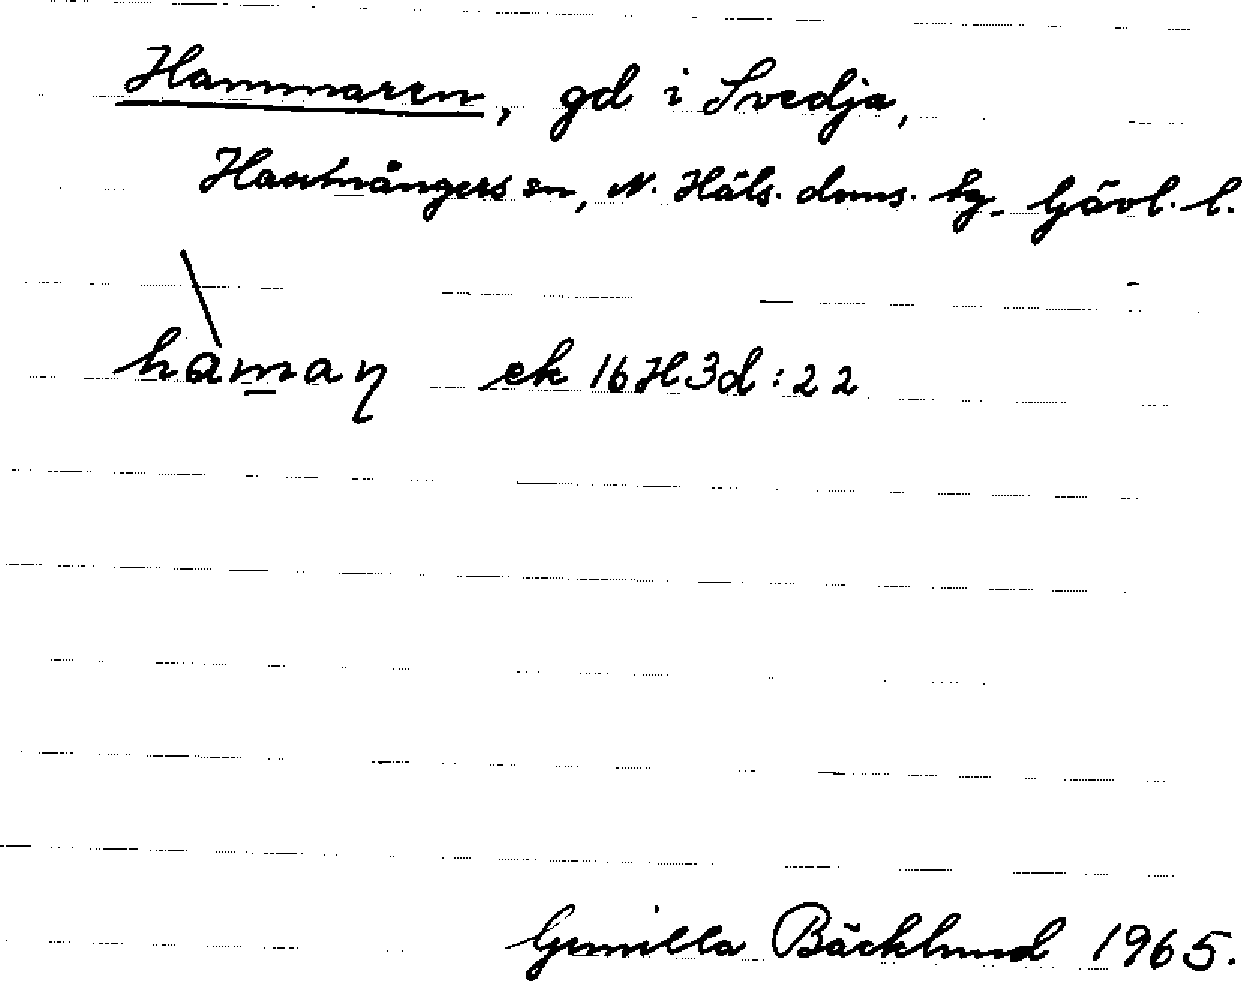 Hammaren, gd i Svedja,
Harmångers sn, N. Häls. doms. tg. Gävl. l.
hàman ek 16H3d:22
Gunilla Bäcklund 1965.